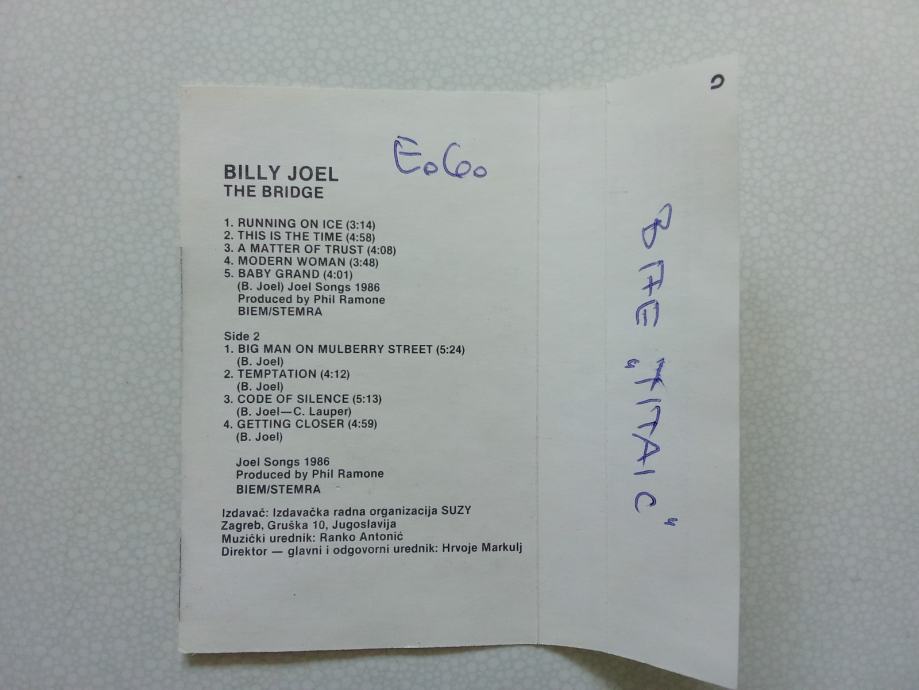 BILLY JOEL
THE BRIDGE
E.G.
1. RUNNING ON ICE (3:14)
2. THIS IS THE TIME (4:58)
3. A MATTER OF TRUST (4:08)
4. MODERN WOMAN (3:48)
5. BABY GRAND (4:01)
(B. Joel) Joel Songs 1986
Produced by Phil Ramone
BIEM/STEMRA
Side 2
1. BIG MAN ON MULBERRY STREET (5:24)
(B. Joel)
2. TEMPTATION (4:12)
(B. Joel)
3. CODE OF SILENCE (5:13)
(B. Joel—C. Lauper)
4. GETTING CLOSER (4:59)
(B. Joel)
Joel Songs 1986
Produced by Phil Ramone
BIEM/STEMRA
Izdavač: Izdavačka radna organizacija SUZY
Zagreb, Gruška 10, Jugoslavija
Muzički urednik: Ranko Antonić
Direktor — glavni i odgovorni urednik: Hrvoje Markulj